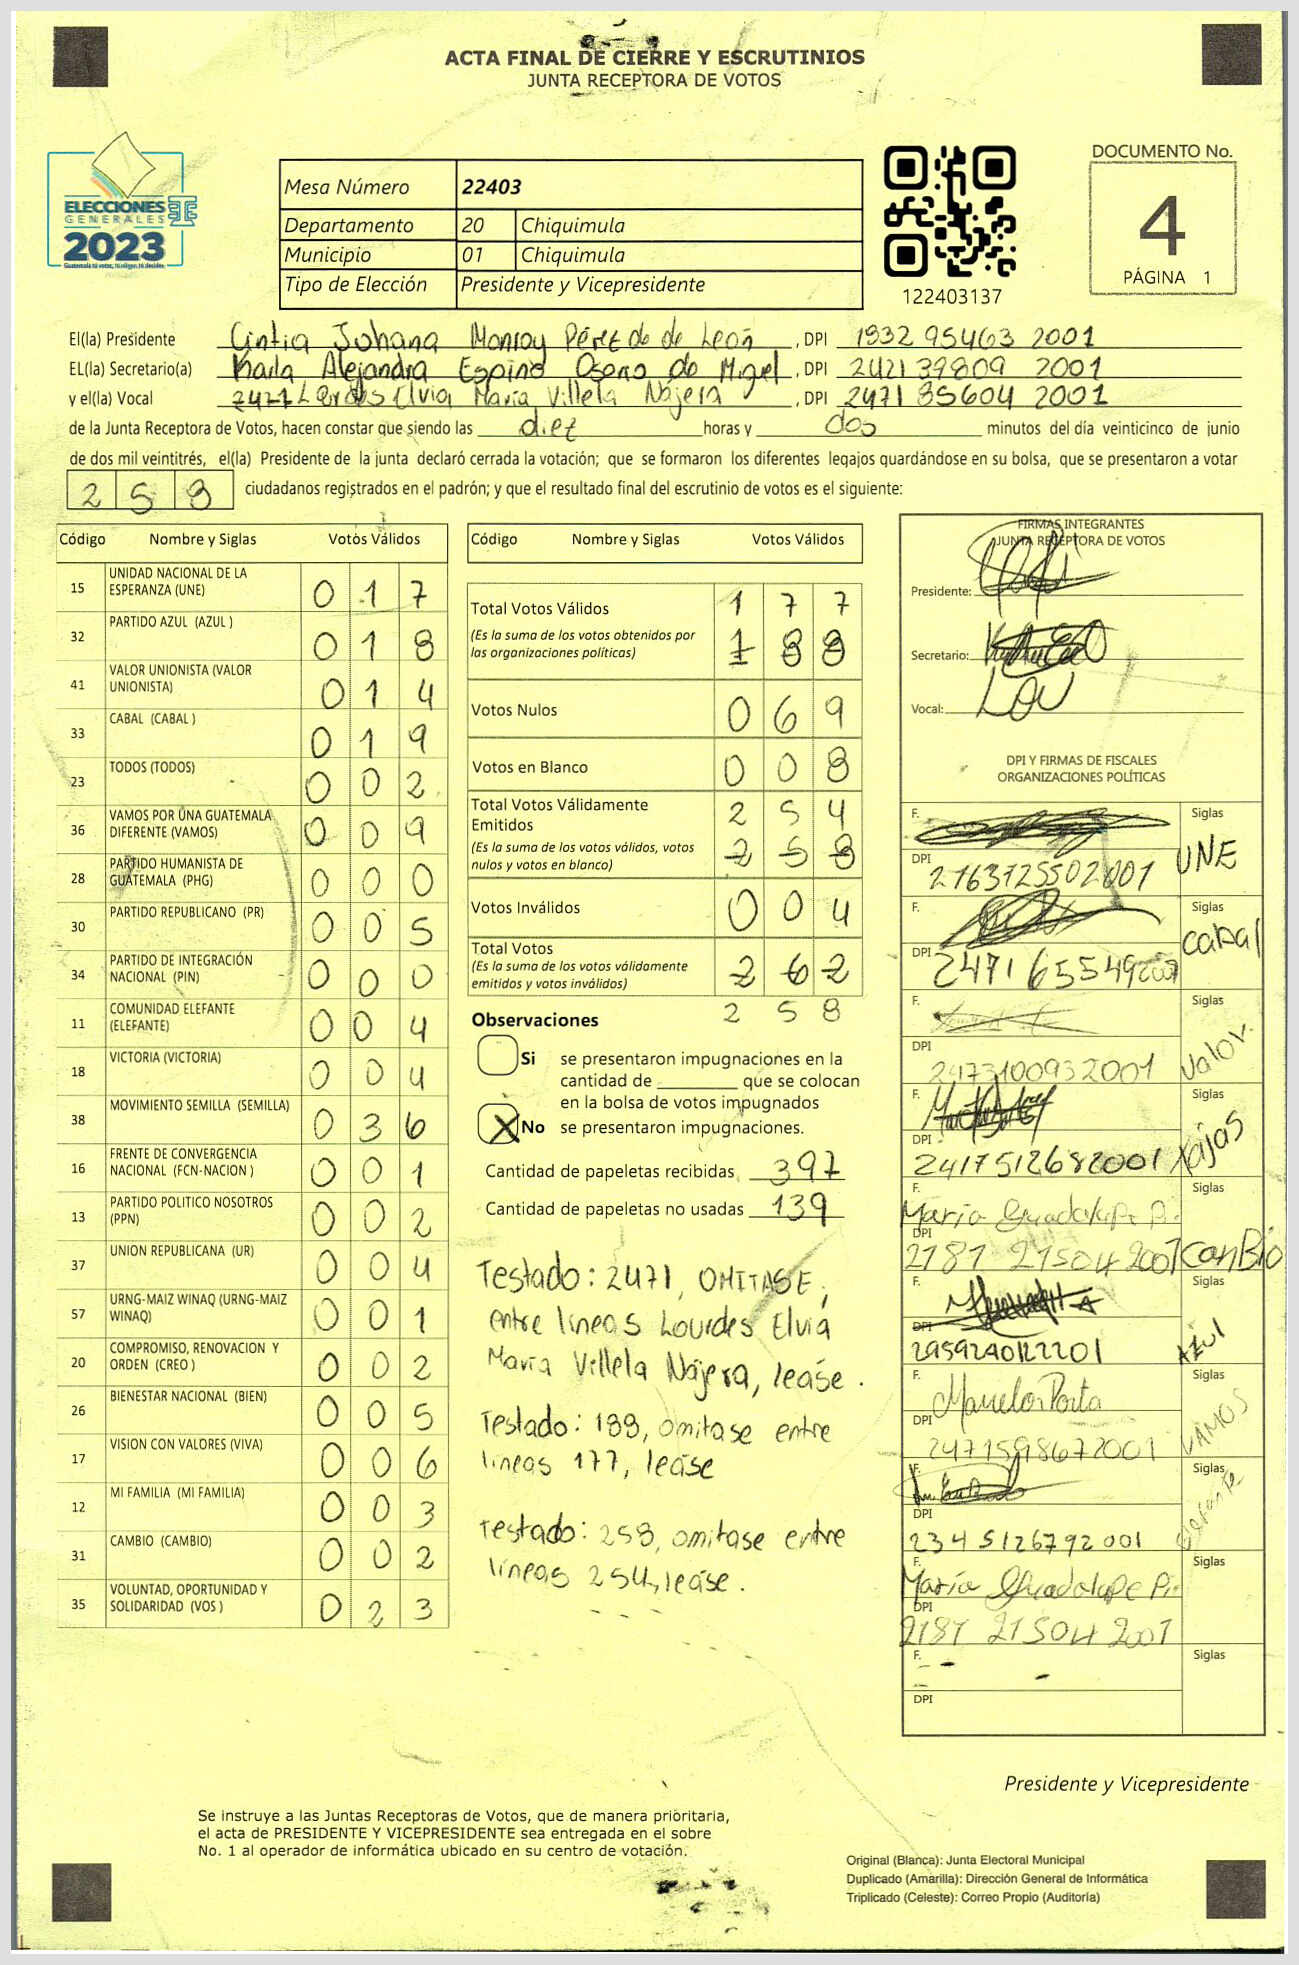 ACTA FINAL DE CIERRE Y ESCRUTINIOS
JUNTA RECEPTORA DE VOTOS
ELECCIONES
GENERALES
2023
Guatemala tú votas, tú eliges, tú decides.
Mesa Número 22403
Departamento 20 Chiquimula
Municipio 01 Chiquimula
Tipo de Elección Presidente y Vicepresidente
122403137
DOCUMENTO No.
4
PÁGINA 1
El(la) Presidente Cintia Johana Monroy Pérez de de León, DPI 1932 95463 2001
EL(la) Secretario(a) Karla Alejandra Espino Osorio de Miguel, DPI 2421 39809 2001
y el(la) Vocal 2471 Lourdes Elvia María Villela Nájera, DPI 2471 85604 2001
de la Junta Receptora de Votos, hacen constar que siendo las diez horas y dos minutos del día veinticinco de junio
de dos mil veintitrés, el(la) Presidente de la junta declaró cerrada la votación; que se formaron los diferentes legajos guardándose en su bolsa, que se presentaron a votar
258 ciudadanos registrados en el padrón; y que el resultado final del escrutinio de votos es el siguiente:
Código Nombre y Siglas Votos Válidos
15 UNIDAD NACIONAL DE LA ESPERANZA (UNE) 0 1 7
32 PARTIDO AZUL (AZUL ) 0 1 8
41 VALOR UNIONISTA (VALOR UNIONISTA) 0 1 4
33 CABAL (CABAL ) 0 1 9
23 TODOS (TODOS) 0 0 2
36 VAMOS POR UNA GUATEMALA DIFERENTE (VAMOS) 0 0 9
28 PARTIDO HUMANISTA DE GUATEMALA (PHG) 0 0 0
30 PARTIDO REPUBLICANO (PR) 0 0 5
34 PARTIDO DE INTEGRACIÓN NACIONAL (PIN) 0 0 0
11 COMUNIDAD ELEFANTE (ELEFANTE) 0 0 4
18 VICTORIA (VICTORIA) 0 0 4
38 MOVIMIENTO SEMILLA (SEMILLA) 0 3 6
16 FRENTE DE CONVERGENCIA NACIONAL (FCN-NACION ) 0 0 1
13 PARTIDO POLITICO NOSOTROS (PPN) 0 0 2
37 UNION REPUBLICANA (UR) 0 0 4
57 URNG-MAIZ WINAQ (URNG-MAIZ WINAQ) 0 0 1
20 COMPROMISO, RENOVACION Y ORDEN (CREO ) 0 0 2
26 BIENESTAR NACIONAL (BIEN) 0 0 5
17 VISION CON VALORES (VIVA) 0 0 6
12 MI FAMILIA (MI FAMILIA) 0 0 3
31 CAMBIO (CAMBIO) 0 0 2
35 VOLUNTAD, OPORTUNIDAD Y SOLIDARIDAD (VOS ) 0 2 3
Código Nombre y Siglas Votos Válidos
Total Votos Válidos 1 7 7
(Es la suma de los votos obtenidos por las organizaciones políticas) 1 8 8
Votos Nulos 0 6 9
Votos en Blanco 0 0 8
Total Votos Válidamente Emitidos 2 5 4
(Es la suma de los votos válidos, votos nulos y votos en blanco) 2 5 8
Votos Inválidos 0 0 4
Total Votos
(Es la suma de los votos válidamente emitidos y votos inválidos) 2 6 2
2 5 8
Observaciones
Si se presentaron impugnaciones en la
cantidad de ________ que se colocan
en la bolsa de votos impugnados
X No se presentaron impugnaciones.
Cantidad de papeletas recibidas 397
Cantidad de papeletas no usadas 139
Testado: 2471, OMITASE,
entre lineas Lourdes Elvia
María Villela Nájera, lease.
Testado: 188, omitase entre
lineas 177, lease
Testado: 258, omitase entre
líneas 254, lease.
FIRMAS INTEGRANTES
JUNTA RECEPTORA DE VOTOS
Presidente:
Secretario:
Vocal:
DPI Y FIRMAS DE FISCALES
ORGANIZACIONES POLÍTICAS
F. Siglas
DPI 2163725502001 UNE
F. Siglas
DPI 2471 65549 2001 CABAL
F. Siglas
DPI 2473100932001 Valor
F. Siglas
DPI 2417512682001
F. María Guadalupe Siglas
DPI 2187 21504 2001 CamBio
F. Siglas
DPI 2959240122201 AZUL
F. Siglas
DPI 2471598672001 VAMOS
F. Siglas
DPI 2345126792001
F. María Guadalupe Siglas
DPI 2187 21504 2001
F. Siglas
DPI
Presidente y Vicepresidente
Se instruye a las Juntas Receptoras de Votos, que de manera prioritaria,
el acta de PRESIDENTE Y VICEPRESIDENTE sea entregada en el sobre
No. 1 al operador de informática ubicado en su centro de votación.
Original (Blanca): Junta Electoral Municipal
Duplicado (Amarilla): Dirección General de Informática
Triplicado (Celeste): Correo Propio (Auditoría)